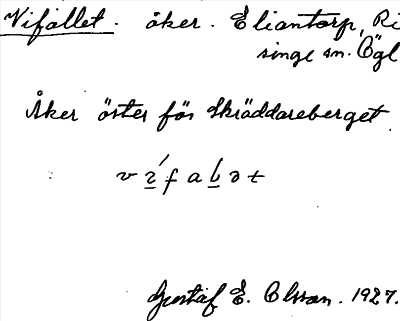 Vifallet. åker. Eliantorp, Ri
singe sn. Ögl
Åker öster för Skräddareberget
Gustaf E. Olsson. 1927.